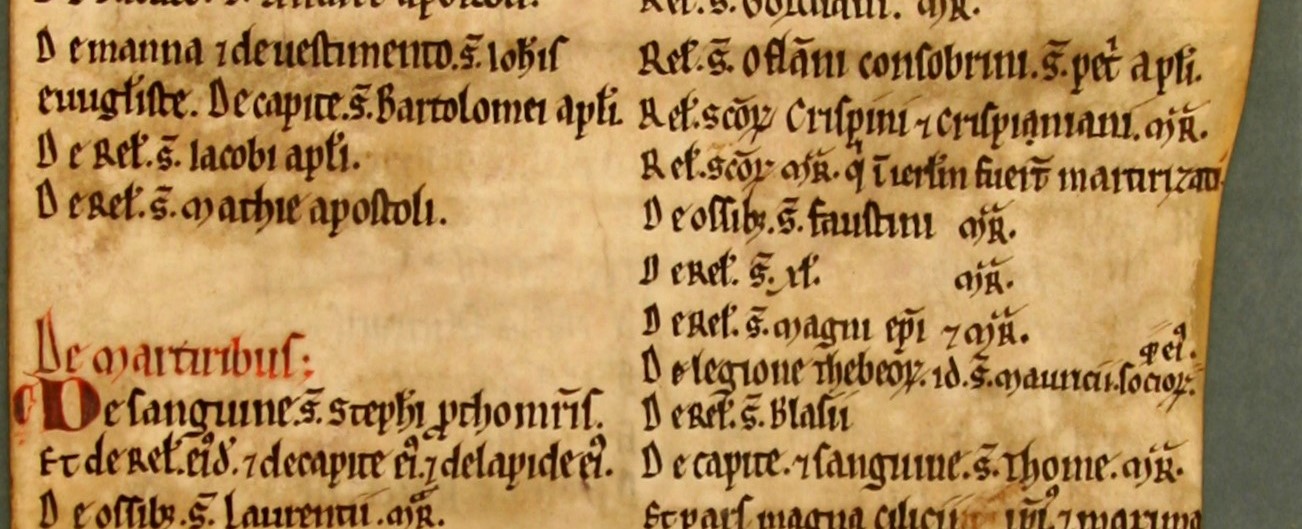 De manna ⁊ de uestimento. s̄. Ioh̄is
euuḡliste. De capite. s̄. Bartolomei apl̄i
De Rel̄. s̄. Iacobi apl̄i.
De Rel̄. s̄. Mathie apostoli.
De Martiribus;
De sanguine. s̄. Steph̄i ꝓthomr̄is.
Et de Rel̄. eiꝰd̄. ⁊ de capite eiꝰ. ⁊ de lapide eiꝰ.
De ossibꝫ. s̄. Laurentii. Mr̄.
Rel̄. s̄. consobrini. s̄. pet̄ apl̄i.
Rel̄. sc̄oꝝ Crispini ⁊ Crispiniani. Mr̄.
Rel̄. sc̄oꝝ Mr̄. q̄ ī ierl̄m fuer̄t martirizati
De ossibꝫ. s̄. Faustini Mr̄.
De Rel̄. s̄. Mr̄.
De Rel̄. s̄. Magni ep̄i ⁊ Mr̄.
De legione Thebeoꝝ. id. s̄. Mauricii. socioꝝ. eiꝰ.
De Rel̄. s̄. Blasii
De capite. ⁊ sanguine. s̄. Thome. Mr̄.
Et pars magna cilicii ⁊ maxima